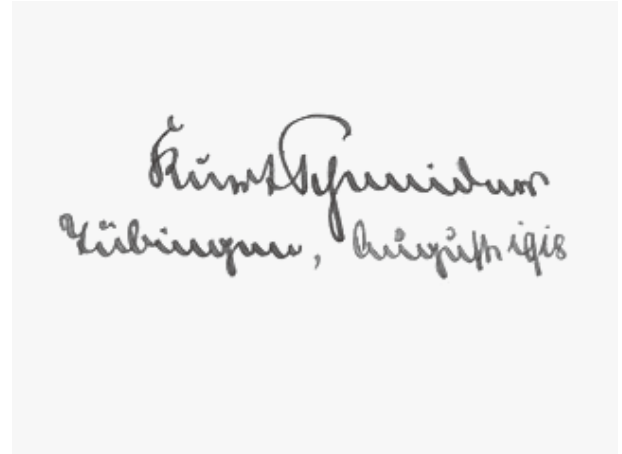 Kurt Schneider
Tübingen, August 1918